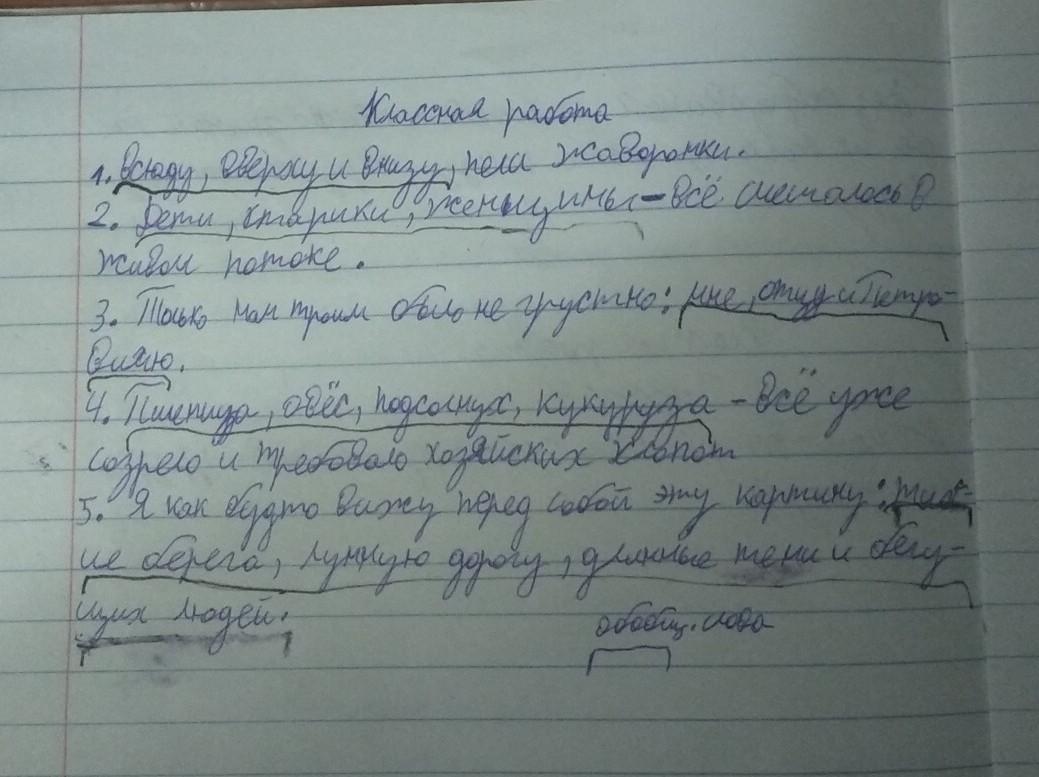 Классная работа
1. Всюду, вверху и внизу, пели жаворонки.
2. Дети, старики, женщины – всё смешалось в
живом потоке.
3. Только нам троим было не грустно: мне, отцу и Петро-
вичю.
4. Пшеница, овёс, подсолнух, кукуруза – всё уже
созрело и требовало хозяйских хлопот
5. Я как будто вижу перед собой эту картину:
ие берега, лунную дорогу, длинные тени и бегу-
щих людей.
обобщ. слова